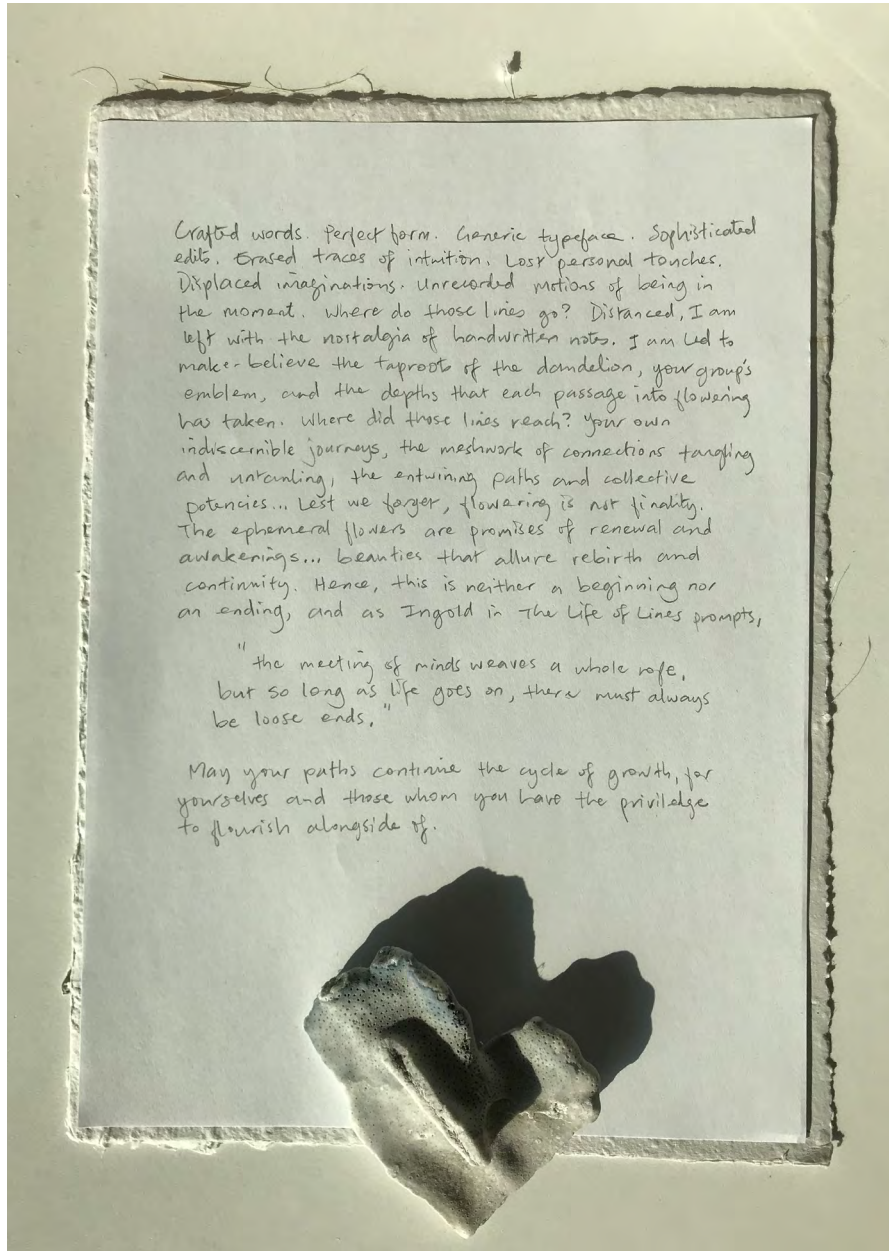 Crafted words. Perfect form. Generic typeface. Sophisticated
edits. Erased traces of intuition. Lost personal touches.
Displaced imaginations. Unrecorded motions of being in
the moment. Where do those lines go? Distanced, I am
left with the nostalgia of handwritten notes. I am led to
make-believe the taproots of the dandelion, your group's
emblem, and the depths that each passage into flowering
has taken. Where did those lines reach? Your own
indiscernible journeys, the meshwork of connections tangling
and untanling, the entwining paths and collective
potencies... Lest we forget, flowering is not finality.
The ephemeral flowers are promises of renewal and
awakenings... beauties that allure rebirth and
continuity. Hence, this is neither a beginning nor
an ending, and as Ingold in The Life of Lines prompts,
"the meeting of minds weaves a whole rope,
but so long as life goes on, there must always
be loose ends."
May your paths continue the cycle of growth, for
yourselves and those whom you have the priviledge
to flourish alongside of.